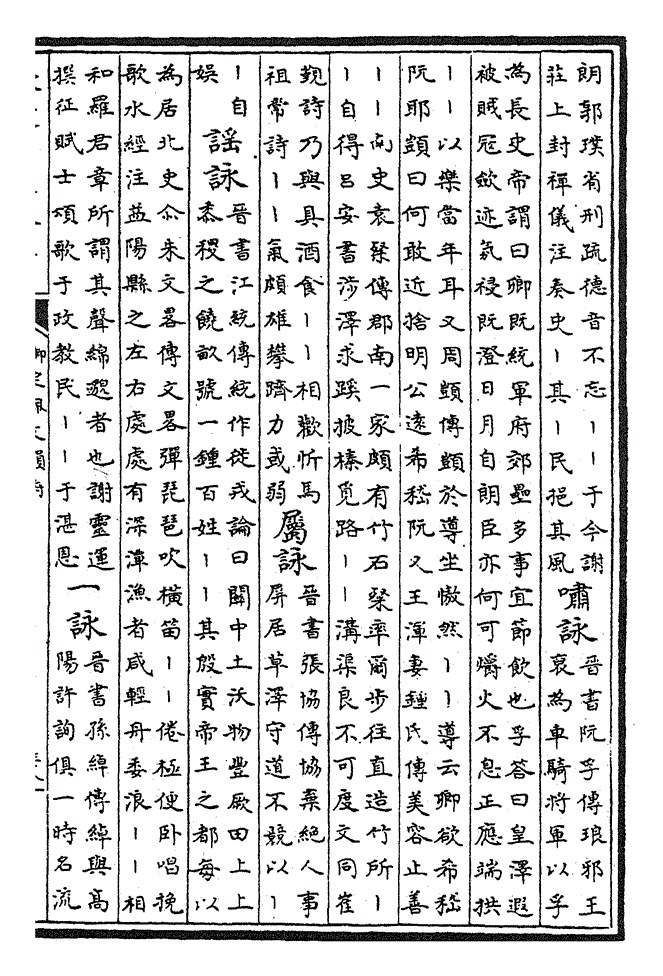 朗郭璞省刑疏德音不忘丨丨于今謝
莊上封禪儀注奏史丨其丨民挹其風
嘯詠
晉書阮孚傳琅邪王
裒為車騎將軍以孚
為長史帝謂曰卿既統軍府郊壘多事宜節飲也孚答曰皇澤遐
被賊寇斂迹氛祲既澄日月自朗臣亦何可爝火不息正應端拱
丨丨以樂當年耳又周顗傳顗於導坐慠然丨丨導云卿欲希嵇
阮耶顗曰何敢近捨明公遠希嵇阮又王渾妻鍾氏傳美容止善
丨丨南史袁粲傳郡南一家頗有竹石粲率爾步往直造竹所丨
丨自得呂安書涉澤求蹊披榛覓路丨丨溝渠良不可度文同崔
覲詩乃與具酒食丨丨相歡忻馬
祖常詩丨丨氣頗雄攀躋力或弱
属詠
晉書張協傳協棄絕人事
屏居草澤守道不競以丨
丨自
娱
謡詠
晉書江統傳統作徙戎論曰關中土沃物豐厥田上上
黍稷之饒畝號一鍾百姓丨丨其殷實帝王之都每以
為居北史尒朱文畧傳文畧彈琵琶吹橫笛丨丨倦極便卧唱挽
歌水經注益陽縣之左右處處有深潭漁者咸輕舟委浪丨丨相
和羅君章所謂其聲綿邈者也謝靈運
撰征賦士頌歌于政教民丨丨于湛恩
一詠
晉書孫綽傳綽與高
陽許詢俱一時名流